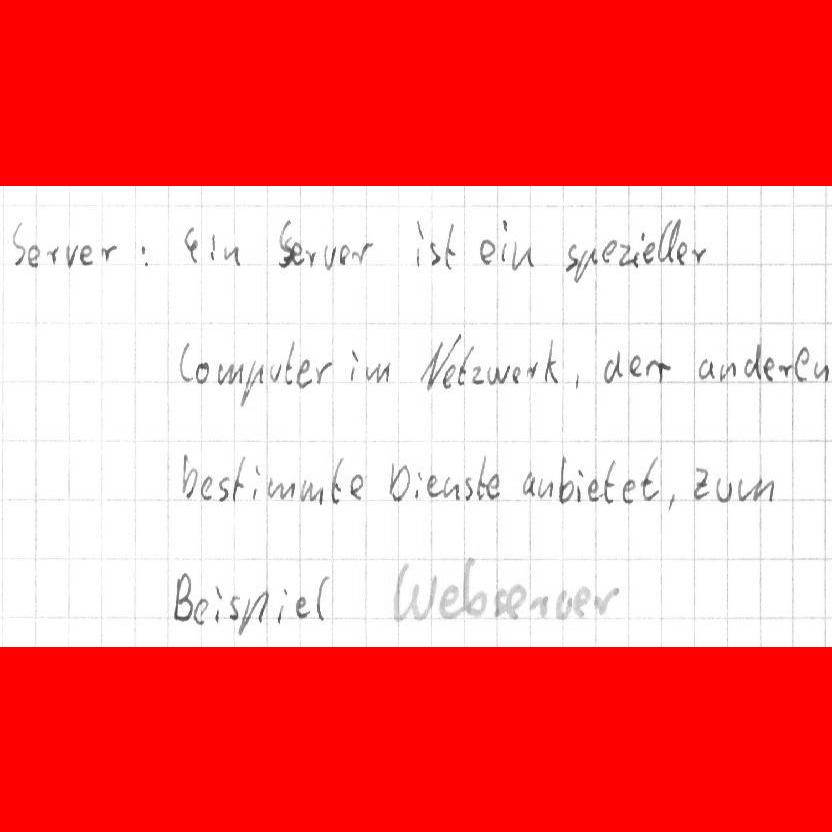 Server: Ein Server ist ein spezieller
Computer im Netzwerk, der anderen
bestimmte Dienste anbietet, zum
Beispiel Webserver